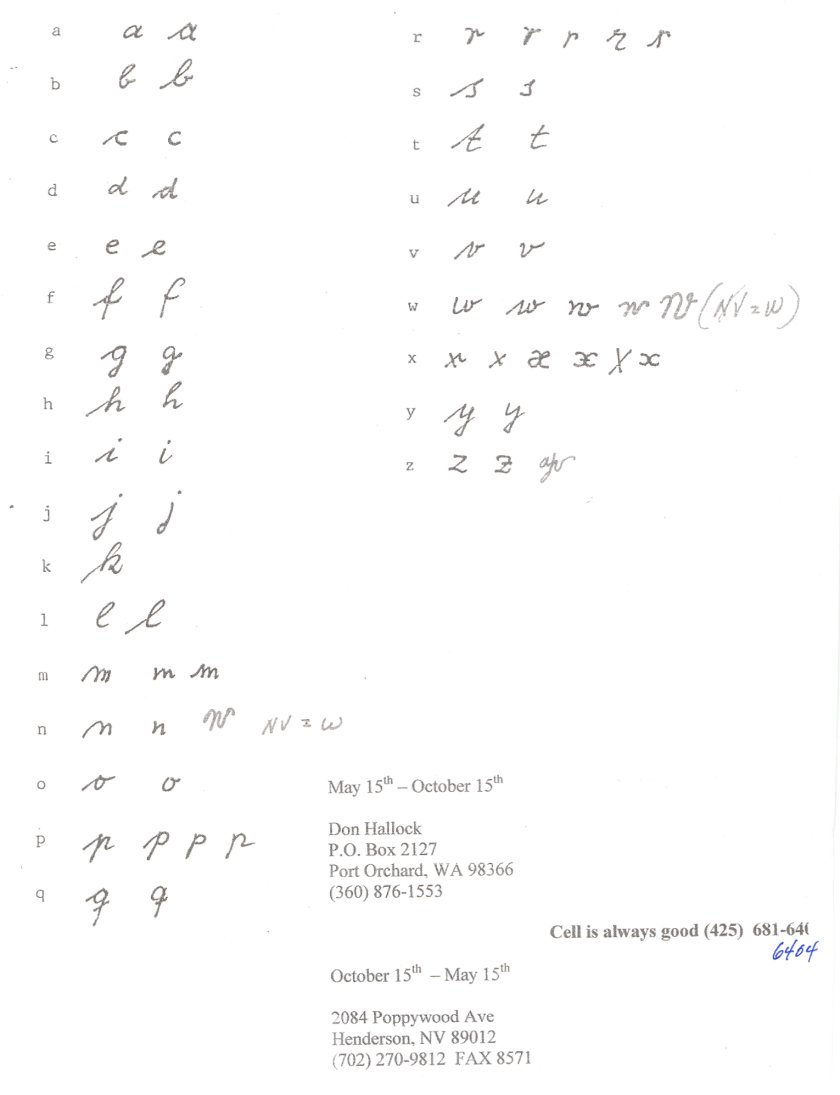 a a a
b b b
c c c
d d d
e e e
f f f
g g g
h h h
i i i
j j j
k k
l l l
m m m m
n n n NV NV = W
o o o
p p p p p
q q q
r r r r r r
s s s
t t t
u u u
v v v
w w w w w NV (NV = W)
x x x x x x x
y y y
z z z
May 15th – October 15th
Don Hallock
P.O. Box 2127
Port Orchard, WA 98366
(360) 876-1553
Cell is always good (425) 681-640
6404
October 15th – May 15th
2084 Poppywood Ave
Henderson, NV 89012
(702) 270-9812 FAX 8571